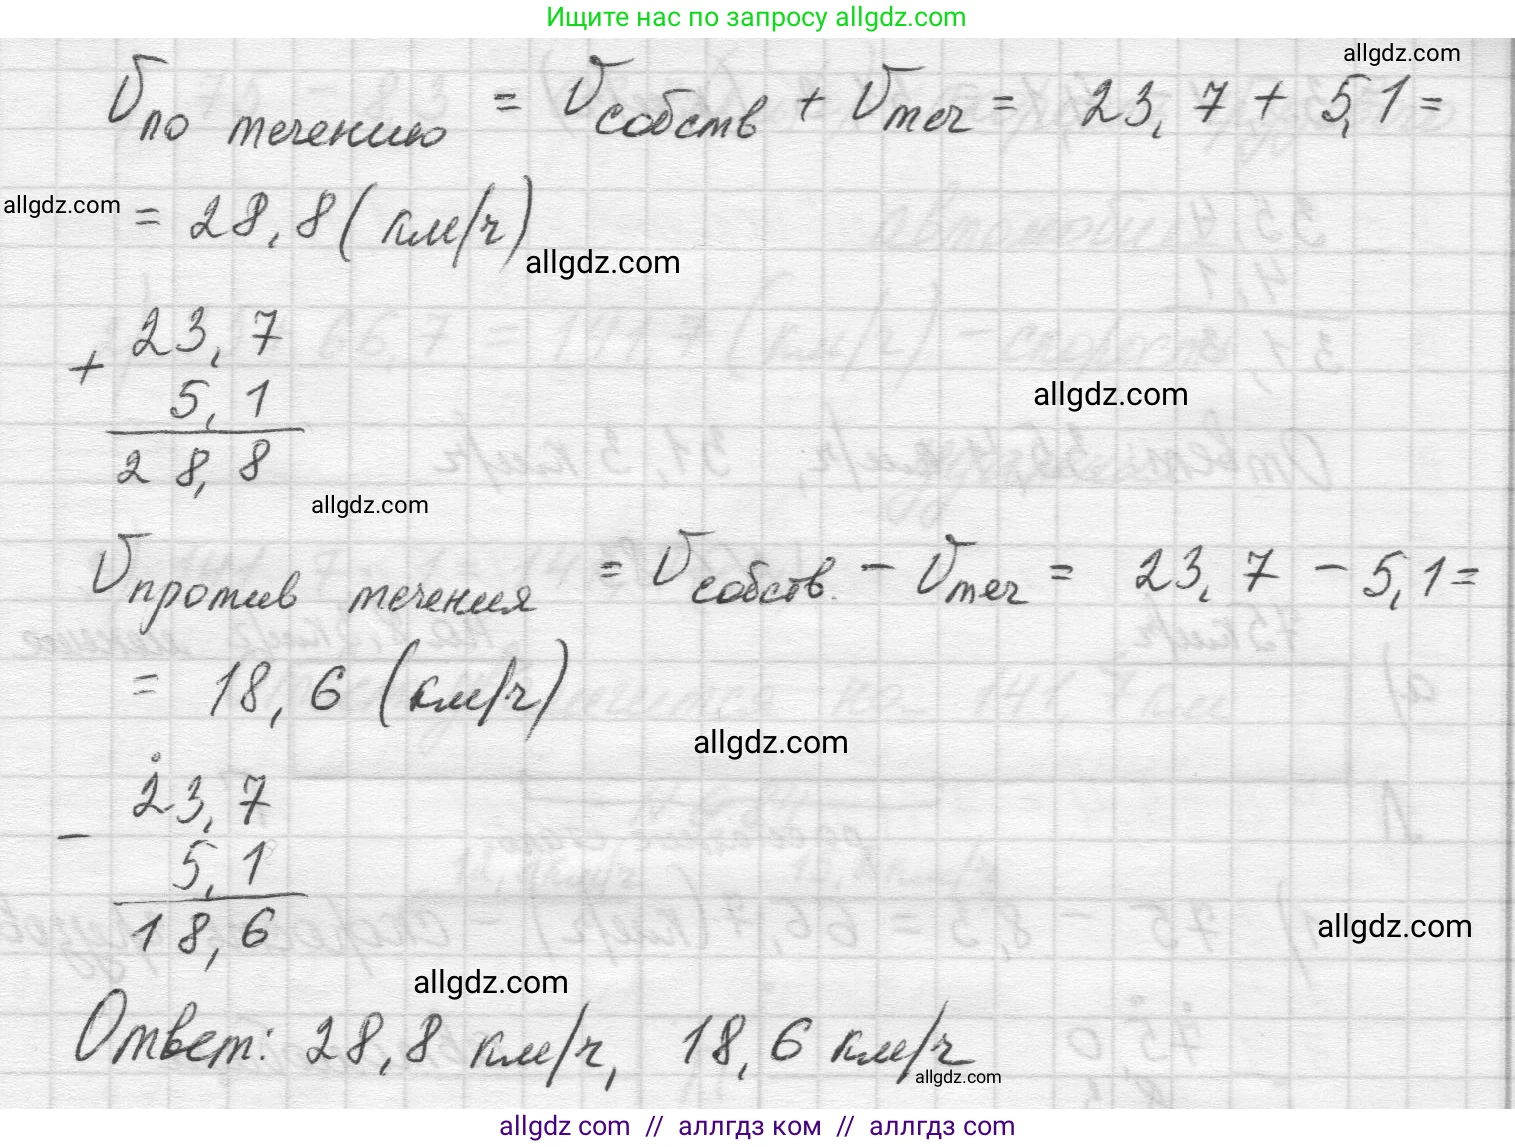 Ищите нас по запросу allgdz.com
allgdz.com
V по течению = V собств + V теч = 23,7 + 5,1 =
allgdz.com
= 28,8 (км/ч)
allgdz.com
+ 23,7
5,1
28,8
allgdz.com
allgdz.com
V против течения = V собств. - V теч = 23,7 - 5,1 =
= 18,6 (км/ч)
allgdz.com
- 23,7
5,1
18,6
allgdz.com
allgdz.com
Ответ: 28,8 км/ч, 18,6 км/ч
allgdz.com
allgdz.com // аллгдз ком // allgdz.com